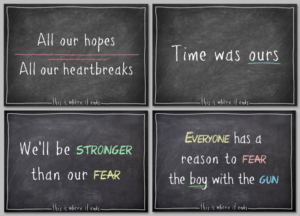 All our hopes
All our heartbreaks
this is where it ends
Time was ours
this is where it ends
We'll be STRONGER
than our FEAR
this is where it ends
EVERYONE has a
reason to FEAR
the boy with the GUN
this is where it ends